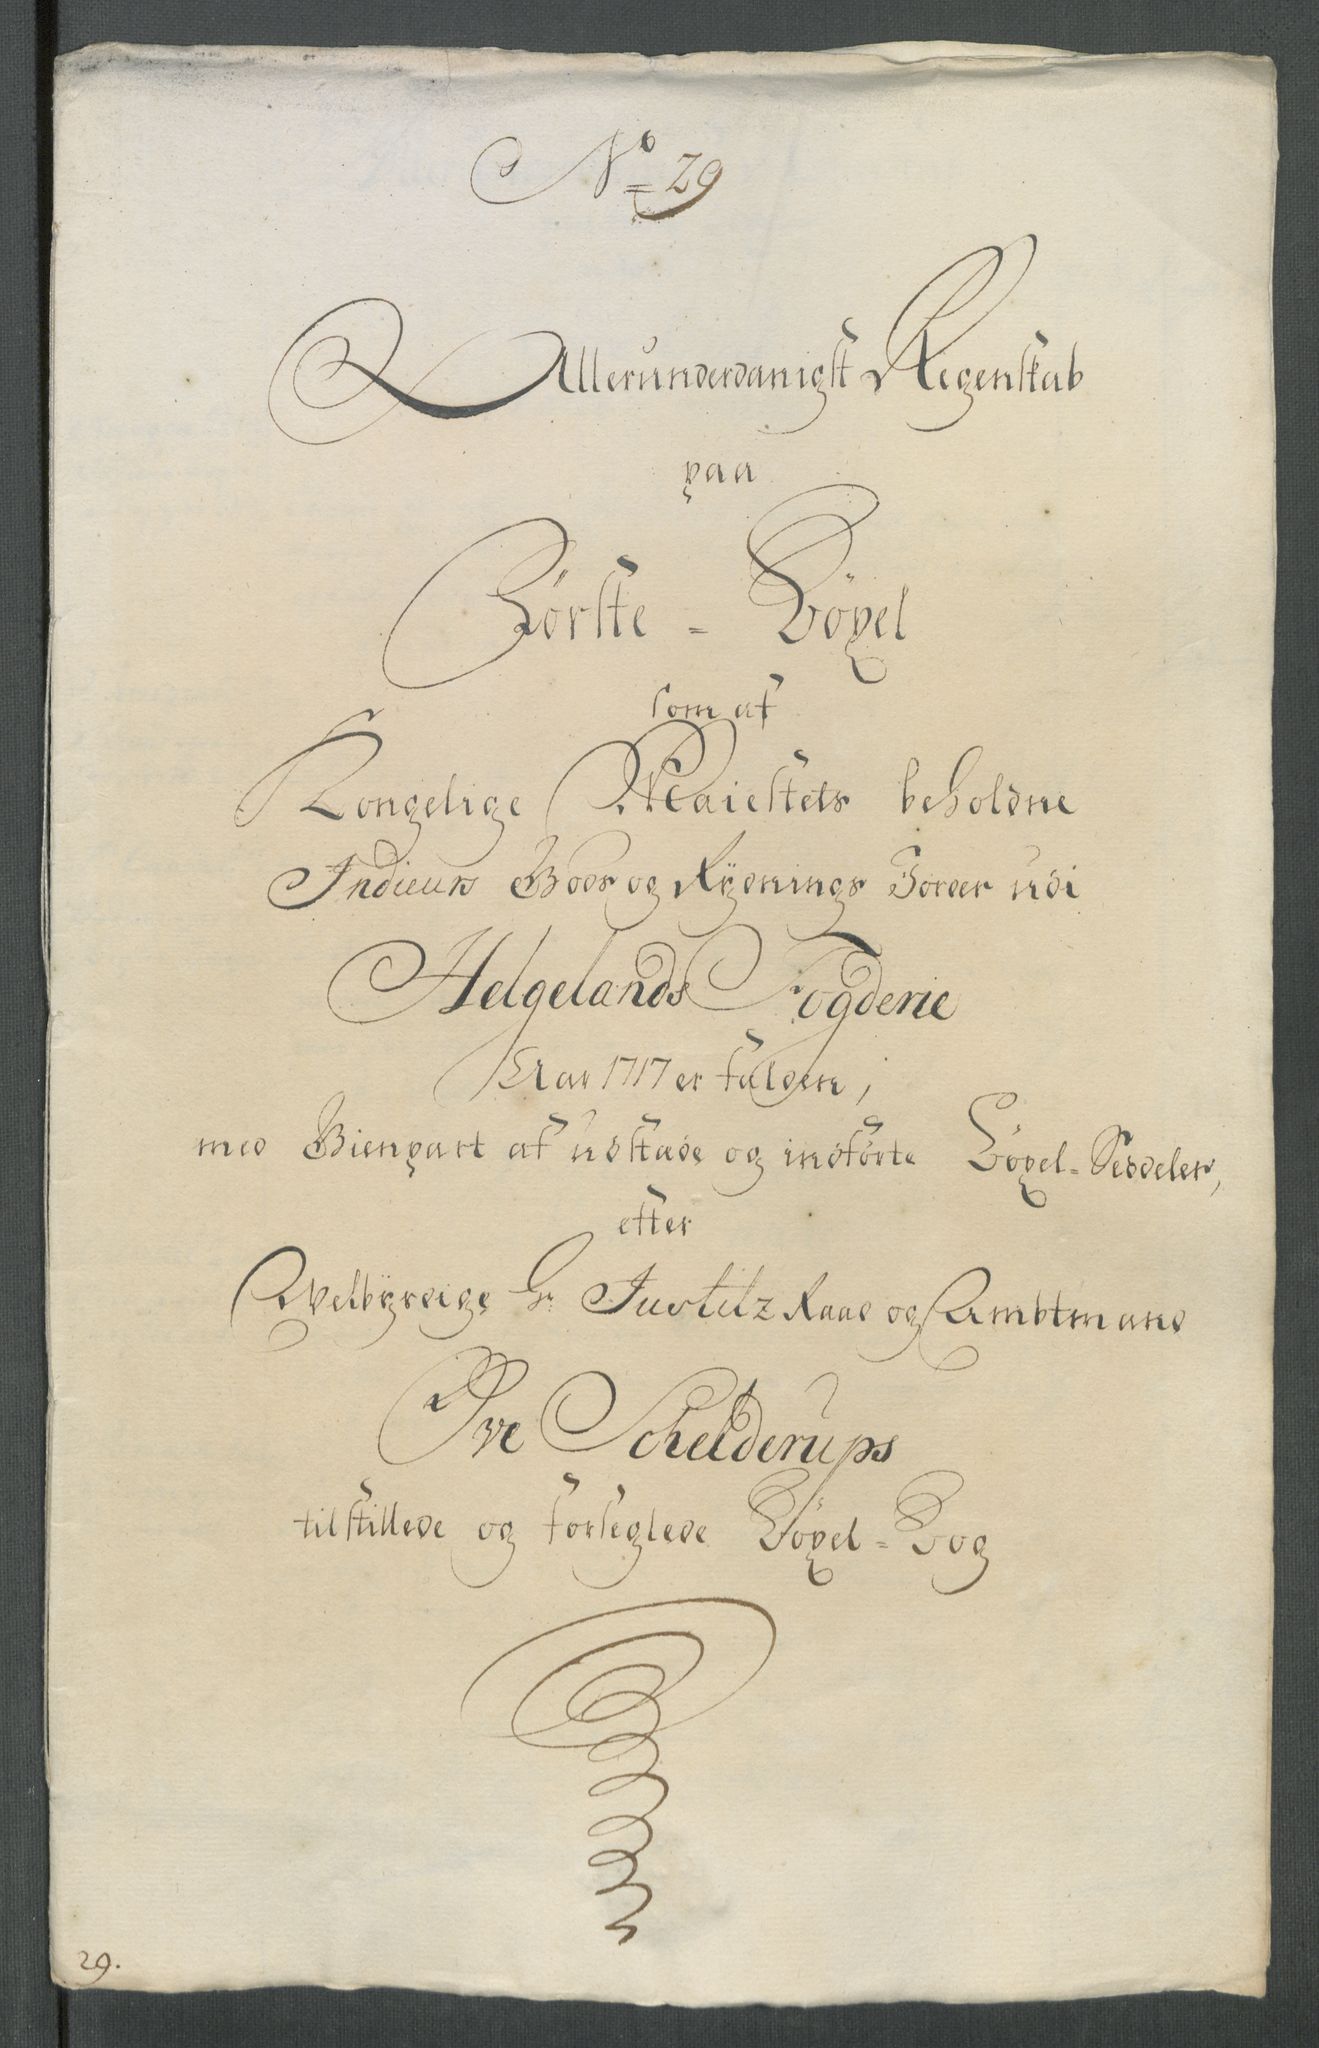 No 29
Allerunderdanigst Regenskab
paa
Förste-Böxel
som af
Kongelige Maiestets beholdne
Indieurs Godz og Rÿdnings Jorder udi
Helgelands Fogderie
Aar 1717 er falden,
med Gienpart af udstæde og indförte Böxel-Sedeler,
efter
Welbÿrdige Hr Justitz Raad og Ambtmand
Ove Schelderups
tilstillede og forseglede Böxel-Bog
29.